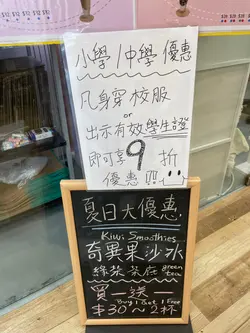 小學/中學 優惠
凡身穿校服
or
出示有效學生證
即可享9折
優惠!!!
夏日大優惠
Kiwi Smoothies
奇異果沙冰
綠茶茶底 green tea
買一送一
Buy 1 Get 1 Free
$30～2杯